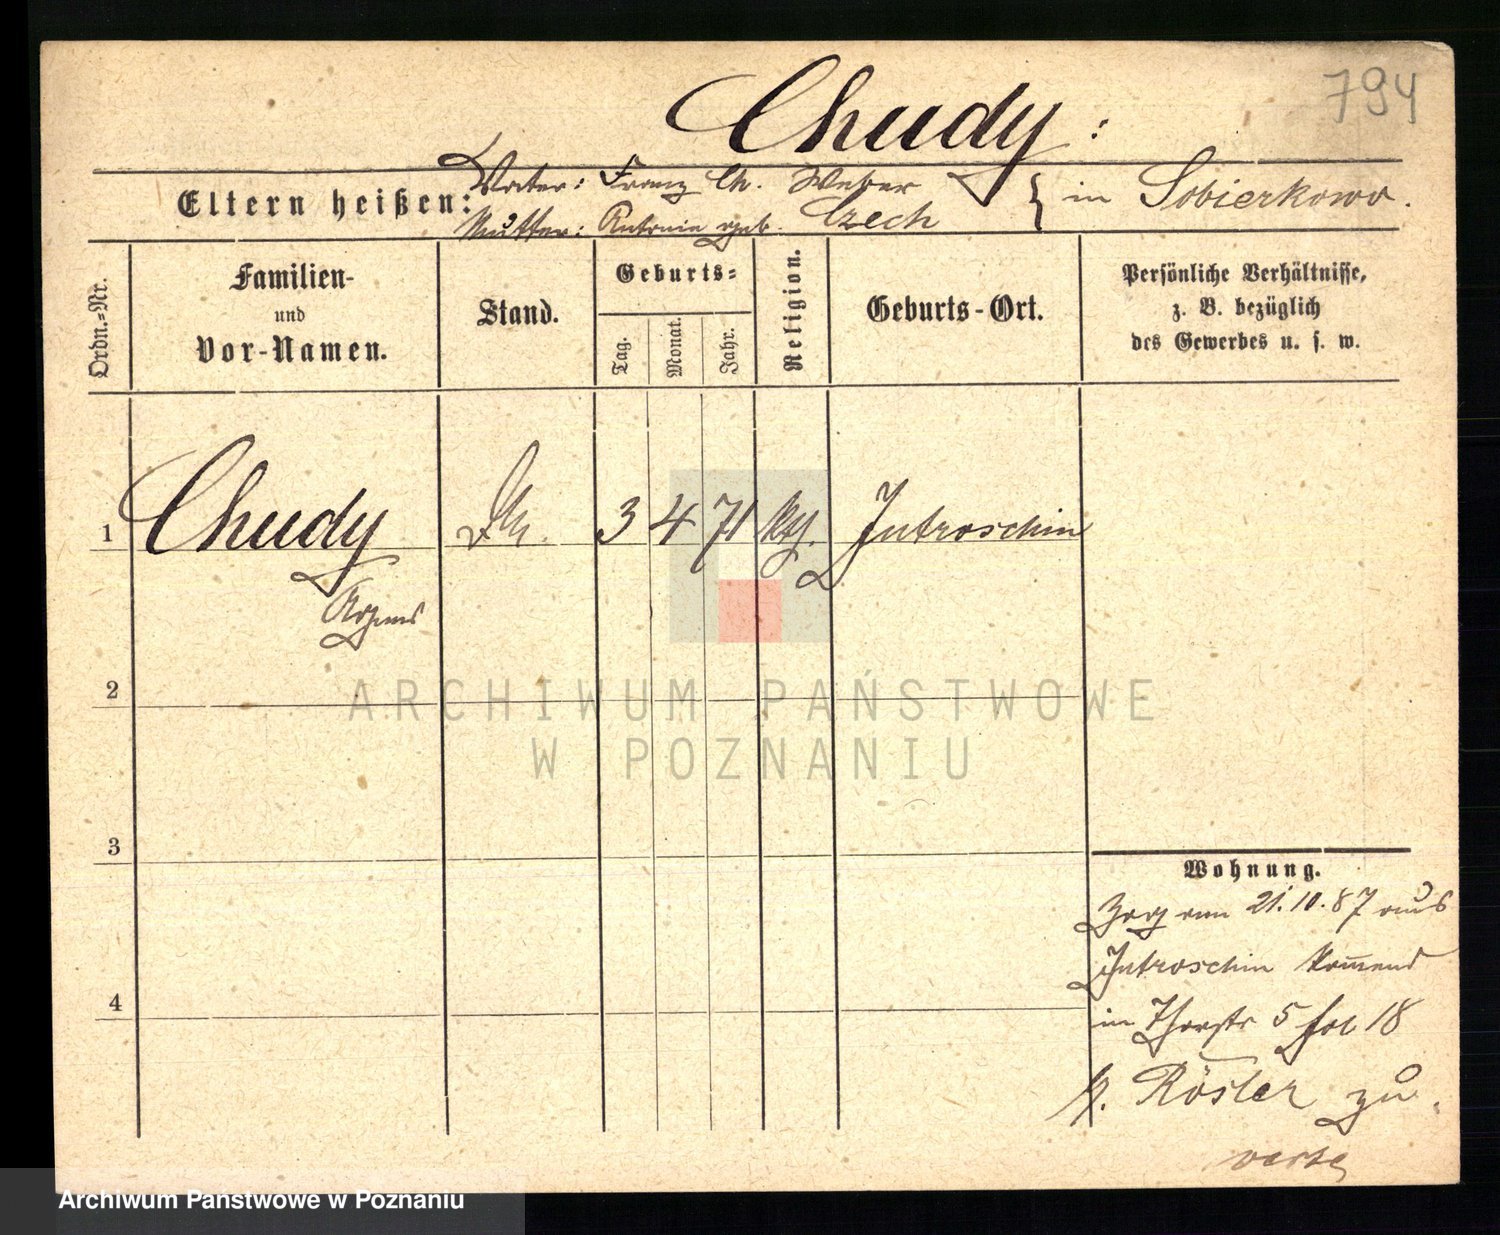 794
Chudy:
Eltern heißen:
Vater: Franz Ch. Weber
Mutter: Antonie geb. Czech
in Sobierkowo.
Ordn.-Nr.
Familien-
und
Vor-Namen.
Stand.
Geburts-
Tag.
Monat.
Jahr.
Religion.
Geburts-Ort.
Persönliche Verhältnisse,
z. B. bezüglich
des Gewerbes u. s. w.
1 Chudy 3 4 71 kth. Jutroschin
Agnes
2
3
4
Wohnung.
Zog am 21.10.87 aus
Jutroschin kommend
in Thorstr 5 18
b. Rösler zu.
verte
ARCHIWUM PAŃSTWOWE
W POZNANIU
Archiwum Państwowe w Poznaniu